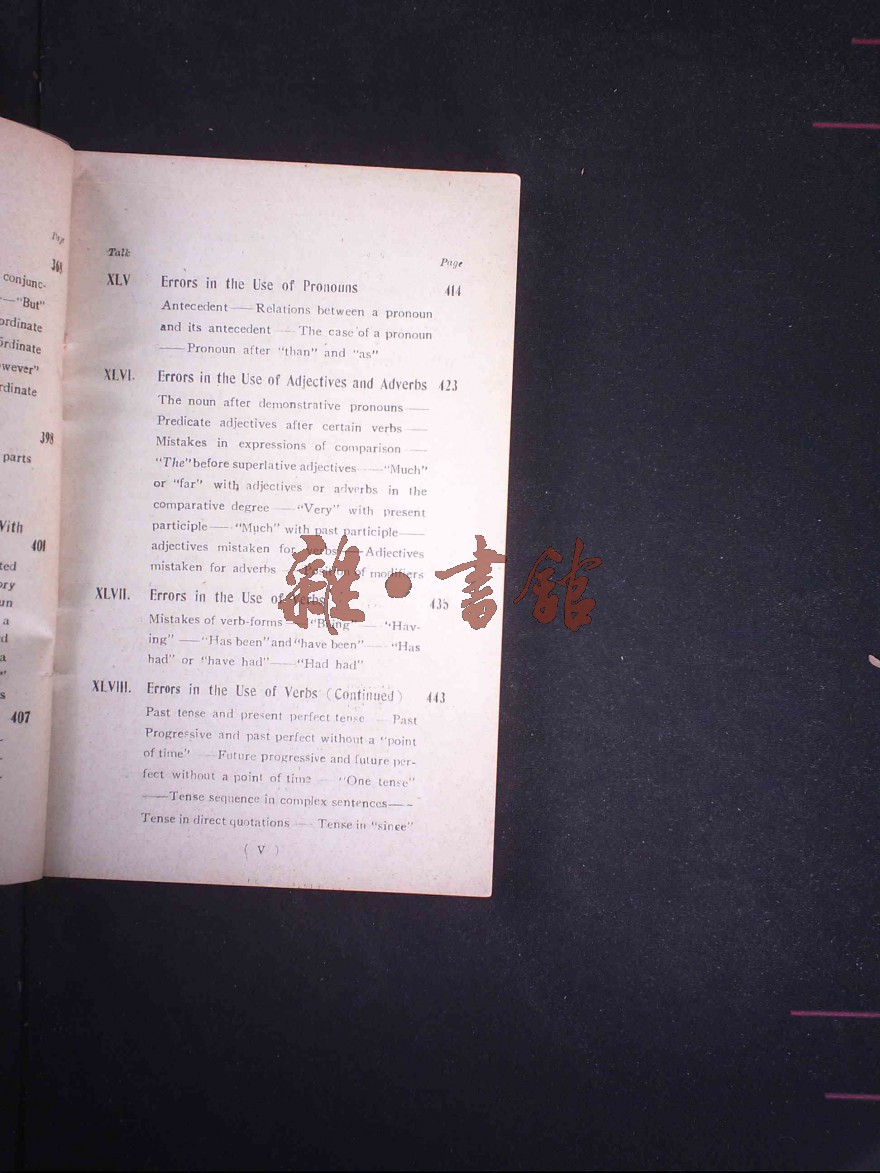 Pag
368
conjunc-
—"But"
ordinate
ordinate
wever"
rdinate
398
parts
With
401
ted
ory
un
a
d
a
"
s
407
Talk
Page
XLV Errors in the Use of Pronouns 414
Antecedent —— Relations between a pronoun
and its antecedent —— The case of a pronoun
—— Pronoun after "than" and "as"
XLVI. Errors in the Use of Adjectives and Adverbs 423
The noun after demonstrative pronouns ——
Predicate adjectives after certain verbs ——
Mistakes in expressions of comparison ——
"The" before superlative adjectives —— "Much"
or "far" with adjectives or adverbs in the
comparative degree —— "Very" with present
participle —— "Much" with past participle ——
adjectives mistaken for verbs —— Adjectives
mistaken for adverbs —— Position of modifiers
XLVII. Errors in the Use of Verbs 435
Mistakes of verb-forms —— "Being" —— "Hav-
ing" —— "Has been" and "have been" —— "Has
had" or "have had" —— "Had had"
XLVIII. Errors in the Use of Verbs (Continued) 443
Past tense and present perfect tense —— Past
Progressive and past perfect without a "point
of time" —— Future progressive and future per-
fect without a point of time —— "One tense"
—— Tense sequence in complex sentences ——
Tense in direct quotations —— Tense in "since"
( V )
雜·書館